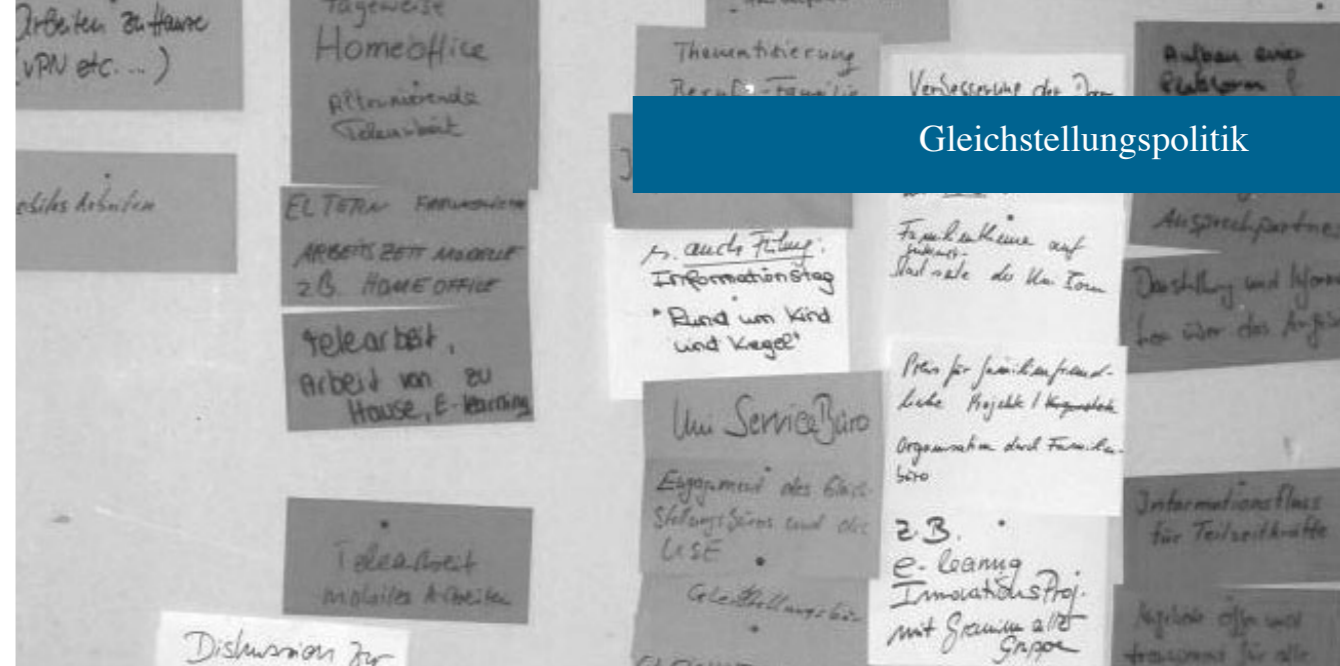 arbeiten zu Hause
(VPN etc. ...)
mobiles Arbeiten
Tageweise
Homeoffice
Alternierende
Telearbeit
ELTERN
ARBEITSZEIT MODELLE
z.B. HOMEOFFICE
telearbeit,
Arbeit von zu
Hause, E-learning
Telearbeit
mobiles Arbeiten
Diskussion zur
Thematisierung
Beruf - Familie
Gleichstellungspolitik
s. auch Führg:
Informationstag
"Rund um Kind
und Kegel"
Uni ServiceBüro
Engagement des Gleich-
stellungsbüros und der
USE
Verbesserung der
auf
der Uni
Preis für familienfreund-
liche Projekte /
Organisation durch Familien-
büro
z.B.
e-learning
InnovationsProj.
mit
Gruppe
Aufbau einer
Plattform
Ansprechpartner
Darstellung und
Informationsfluss
für Teilzeitkräfte
Angebote offen und
transparent für alle